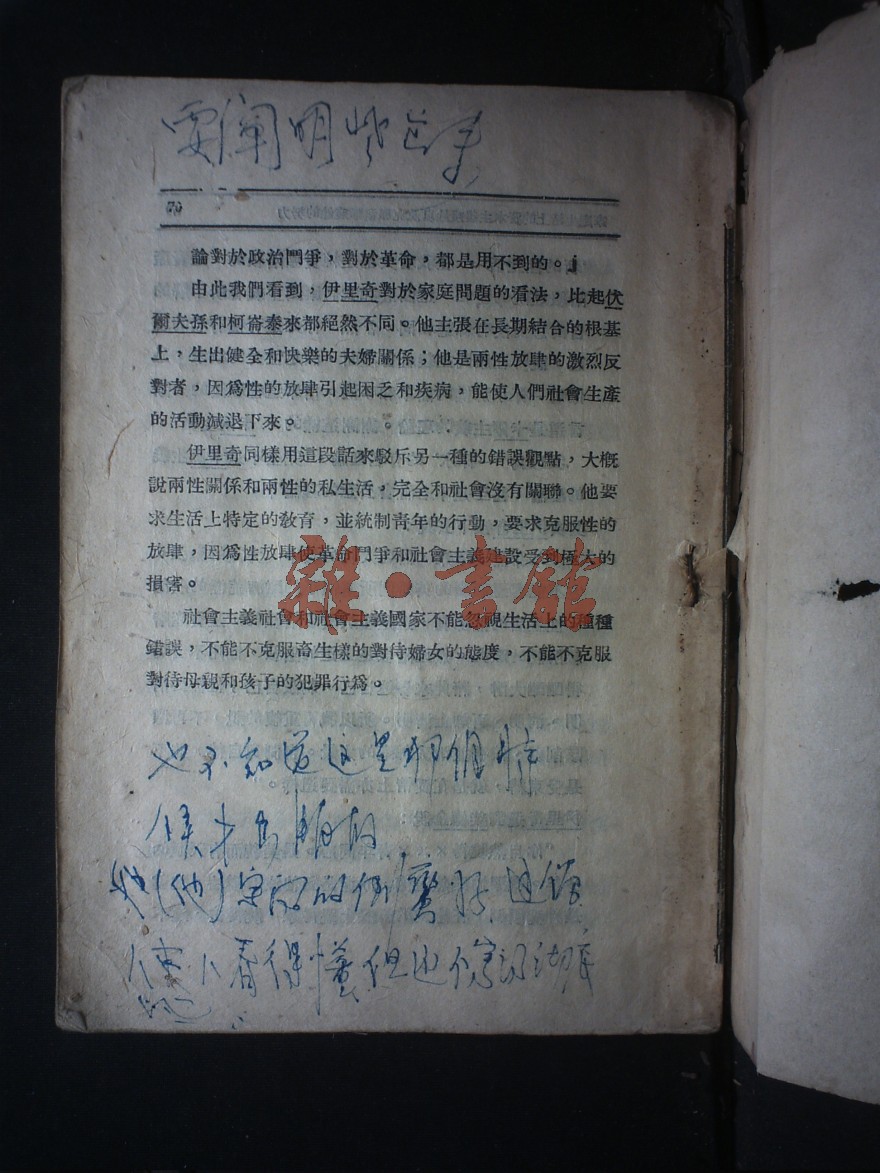 要阐明
論對於政治鬥爭，對於革命，都是用不到的。」
由此我們看到，伊里奇對於家庭問題的看法，比起伏
爾夫孫和柯崙泰來都絕然不同。他主張在長期結合的根基
上，生出健全和快樂的夫婦關係；他是兩性放肆的激烈反
對者，因爲性的放肆引起困乏和疾病，能使人們社會生產
的活動減退下來。
伊里奇同樣用這段話來駁斥另一種的錯誤觀點，大概
說兩性關係和兩性的私生活，完全和社會沒有關聯。他要
求生活上特定的敎育，並統制靑年的行動，要求克服性的
放肆，因爲性放肆使革命鬥爭和社會主義建設受到極大的
損害。
雜·書館
社會主義社會和社會主義國家不能忽視生活上的種種
錯誤，不能不克服畜生樣的對侍婦女的態度，不能不克服
對待母親和孩子的犯罪行爲。
也不知道这是那個時
候才出版的
她(他)字写的倒蛮好
看得懂但也